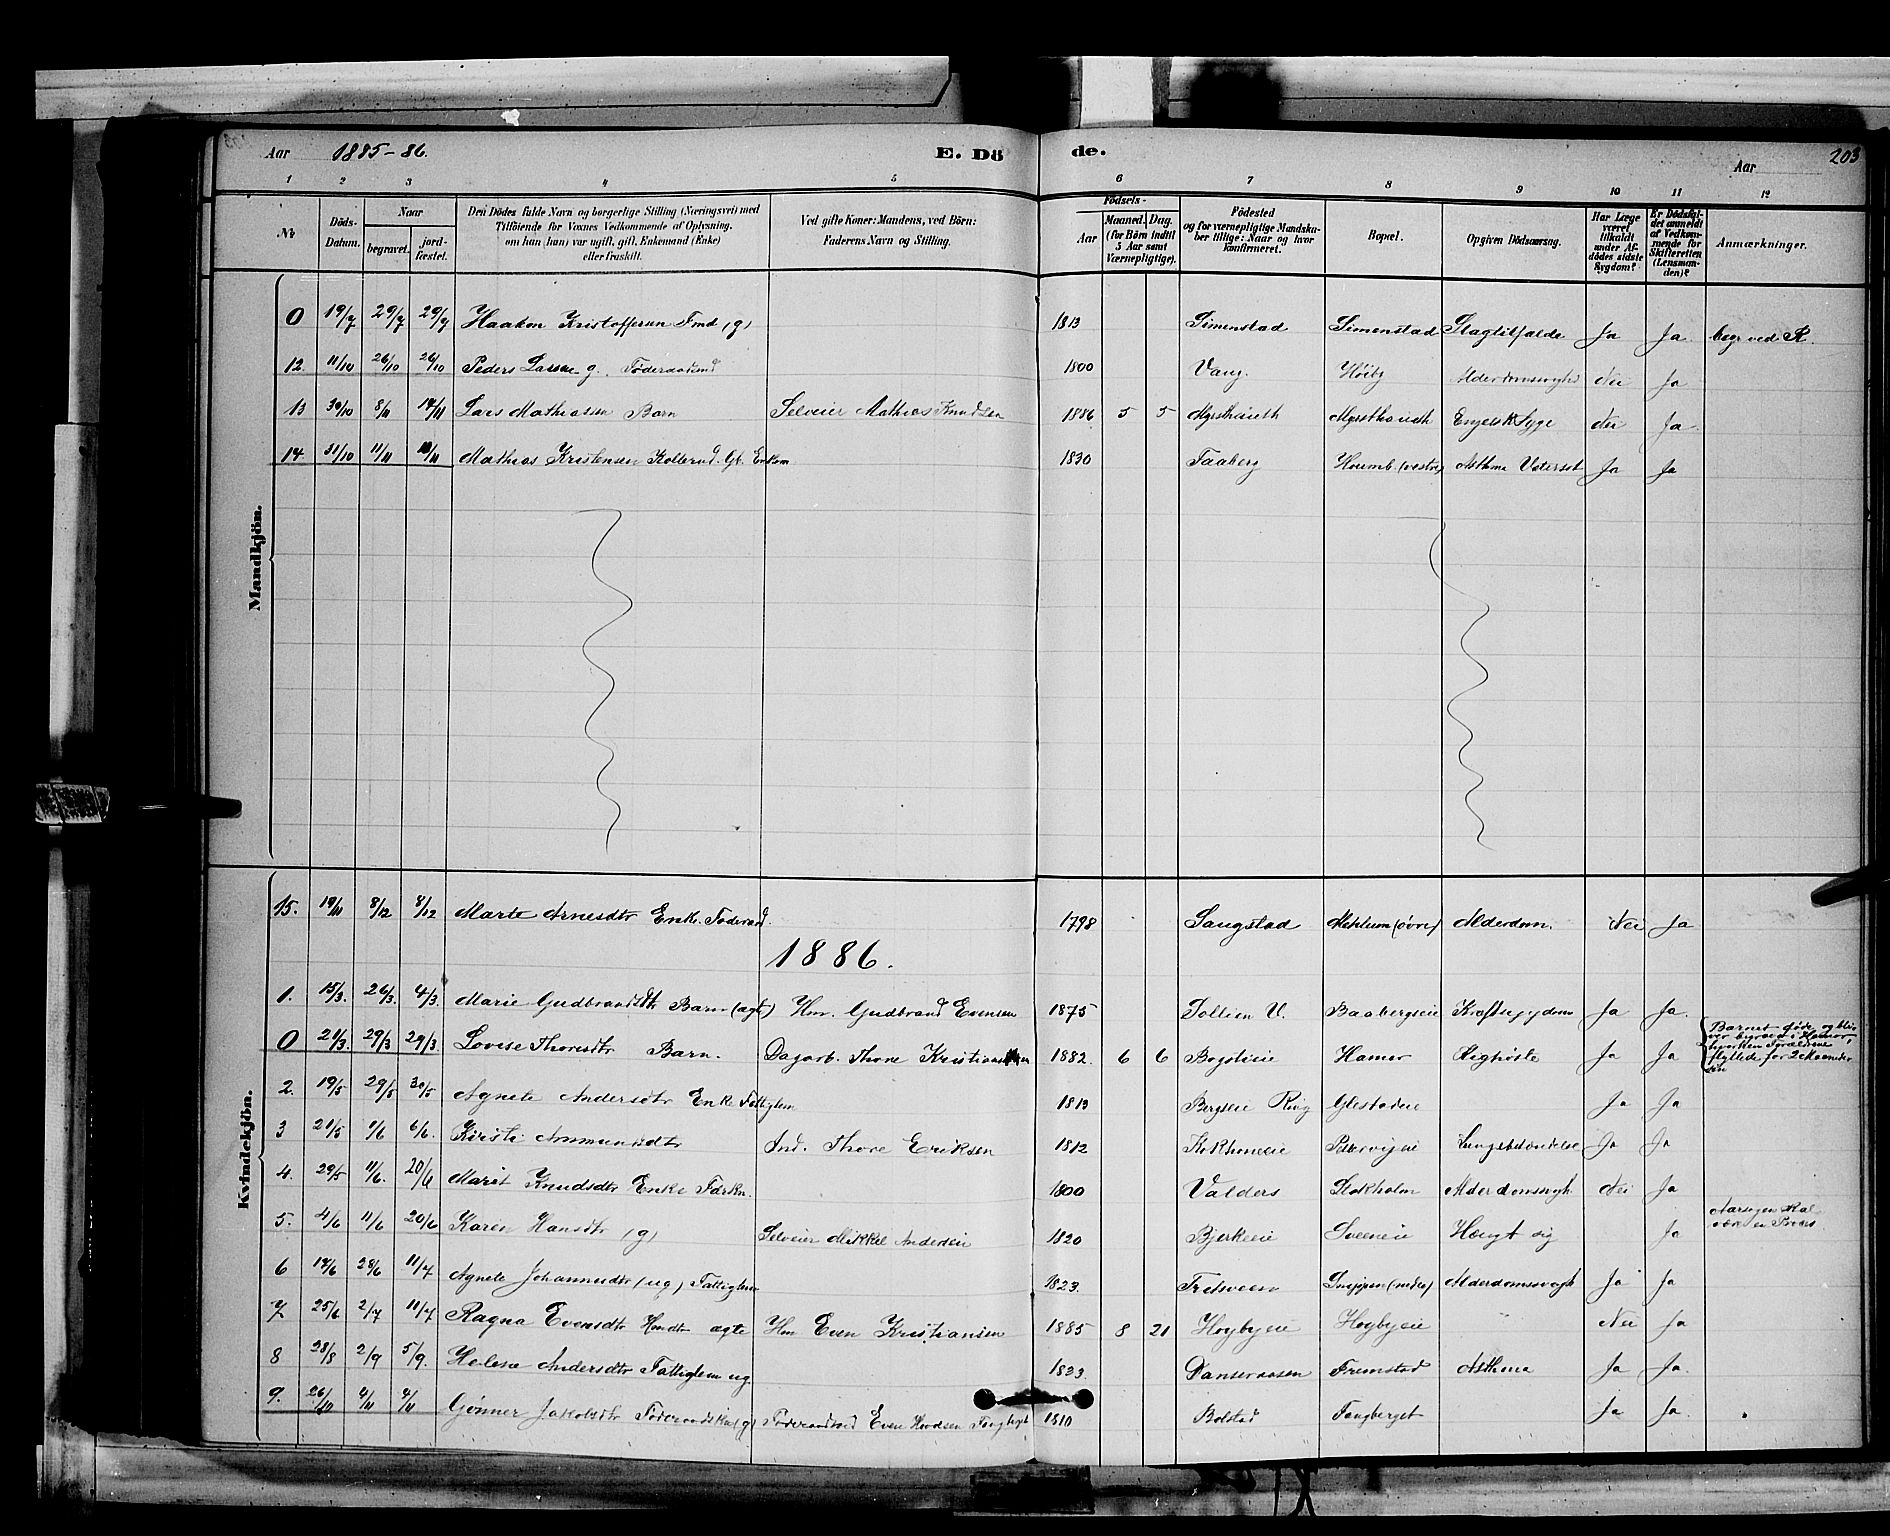 Aar 1885-86. E. Dö de. Aar 203
1 2 3 4 5 6 7 8 9 10 11 12
No Döds-Datum. Naar begravet. jord-fæstet. Den Dödes fulde Navn og borgerlige Stilling (Næringsvei) med Tilföiende for Voxnes Vedkommende af Oplysning, om han (hun) var ugift, gift, Enkemand (Enke) eller fraskilt. Ved gifte Koner: Mandens, ved Börn: Faderens Navn og Stilling. Födsels- Aar Maaned. Dag. (for Börn indtil 5 Aar samt Værnepligtige). Födested og for værnepligtige Mandskaber tillige: Naar og hvor konfirmeret. Bopæl. Opgiven Dödsaarsag. Har Læge været tilkaldt under Afdödes sidste Sygdom? Er Dödsfaldet anmeldt af Vedkommende for Skifteretten (Lensmanden)? Anmærkninger.
Mandkjön.
0 19/7 29/7 29/7 Haakon Kristoffersen Fmd (g) 1813 Simenstad Simenstad Slagtilfælde Ja Ja begr ved R.
12. 11/10 26/10 26/10 Peders Larsen g. Föderaadsmd 1800 Vang. Höiby Alderdomssvaghd Nei Ja
13 30/10 8/11 14/11 Lars Mathiassen Barn Selveier Mathias Knudsen 1886 5 5 Engelsk Syge Nei Ja
14. 31/10 11/11 11/11 Mathias Kristensen Kollerud. Gb. Enkem 1830 Faaberg (vestre) Asthma Ja Ja
Kvindekjön.
15. 19/11 8/12 8/12 Marte Arnesdtr Enke. Föderaad. 1798 Saugstad Mehlum (övre) Alderdom. Nei Ja
1886.
1. 15/3. 26/3. 4/3. Marie Gudbrandsdtr Barn (ægte) Hm. Gudbrand Evensen 1875 Sollien V. Baabergseie Ja Ja.
0 21/3. 29/3 29/3. Lovise Thoresdtr Barn. Dagarb. Thore Kristiansen 1882. 6 6 Hamar Ja Ja Barnet og blev Hamar, flyttede for 2 Maaneder siden
2. 19/5 29/5 30/5 Agnete Andersdtr Enke Fattiglem 1813 Bergseie Ring Ja Ja
3 21/5 1/6 6/6. Kirsti Ammundsdtr Ind. Thore Eriksen 1812 Lungebetændelse Ja Ja
4. 29/5 11/6. 20/6 Marit Knudsdtr Enke 1800 Valders Stokholm Alderdomssvagh Nei Ja
5. 4/6 11/6 20/6 Karen Hansdtr (g) Selveier Mikkel Andersen 1820 Bjerkeeie Sveeneie Hængt sig Ja
6 14/6 28/6 11/7 Agnete Johannesdtr (ug) Fattiglem 1823. Fretsveen (nedre) Alderdomssvagh Ja Ja
7 25/6 2/7 11/7 Ragna Evensdtr ægte Hm Even Kristiansen 1885 8 21 Hoybyeie Hoybyeie Nei Ja
8 28/8 2/9 5/9. Helene Andersdtr Fattiglem ug. 1823. Danseraasen Fremstad Asthma Ja Ja.
9. 26/10 4/11 4/11 Gønner Jakobsdtr Föderaadskone (g) Föderaadsmd Even 1810 Bolstad Fangberget Ja Ja.